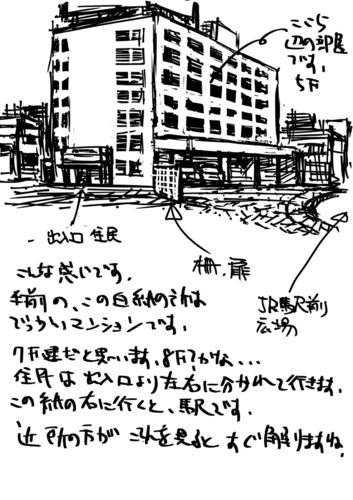 ここら
辺の部屋
です。
5F
出入口 住民
柵、扉
JR駅前
広場
こんな感じです。
手前の、この白紙の所は
でっかいマンションです。
7F建だと思います。8F?かな、、、
住民は出入口より左右に分かれて行きます。
この紙の右に行くと、駅です。
近所の方がこれを見るとすぐ解りますね。